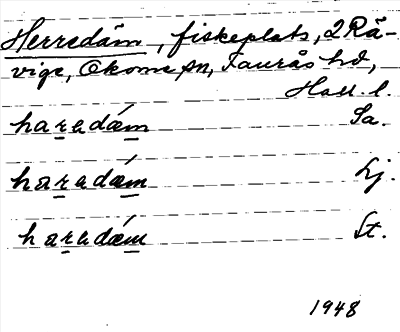 Herredäm, fiskeplats, 2 Rä-
vige, Okome sn, Faurås hd,
Hall. l.
haradǽm Sa.
haradǽm Lj.
haradǽm St.
1948